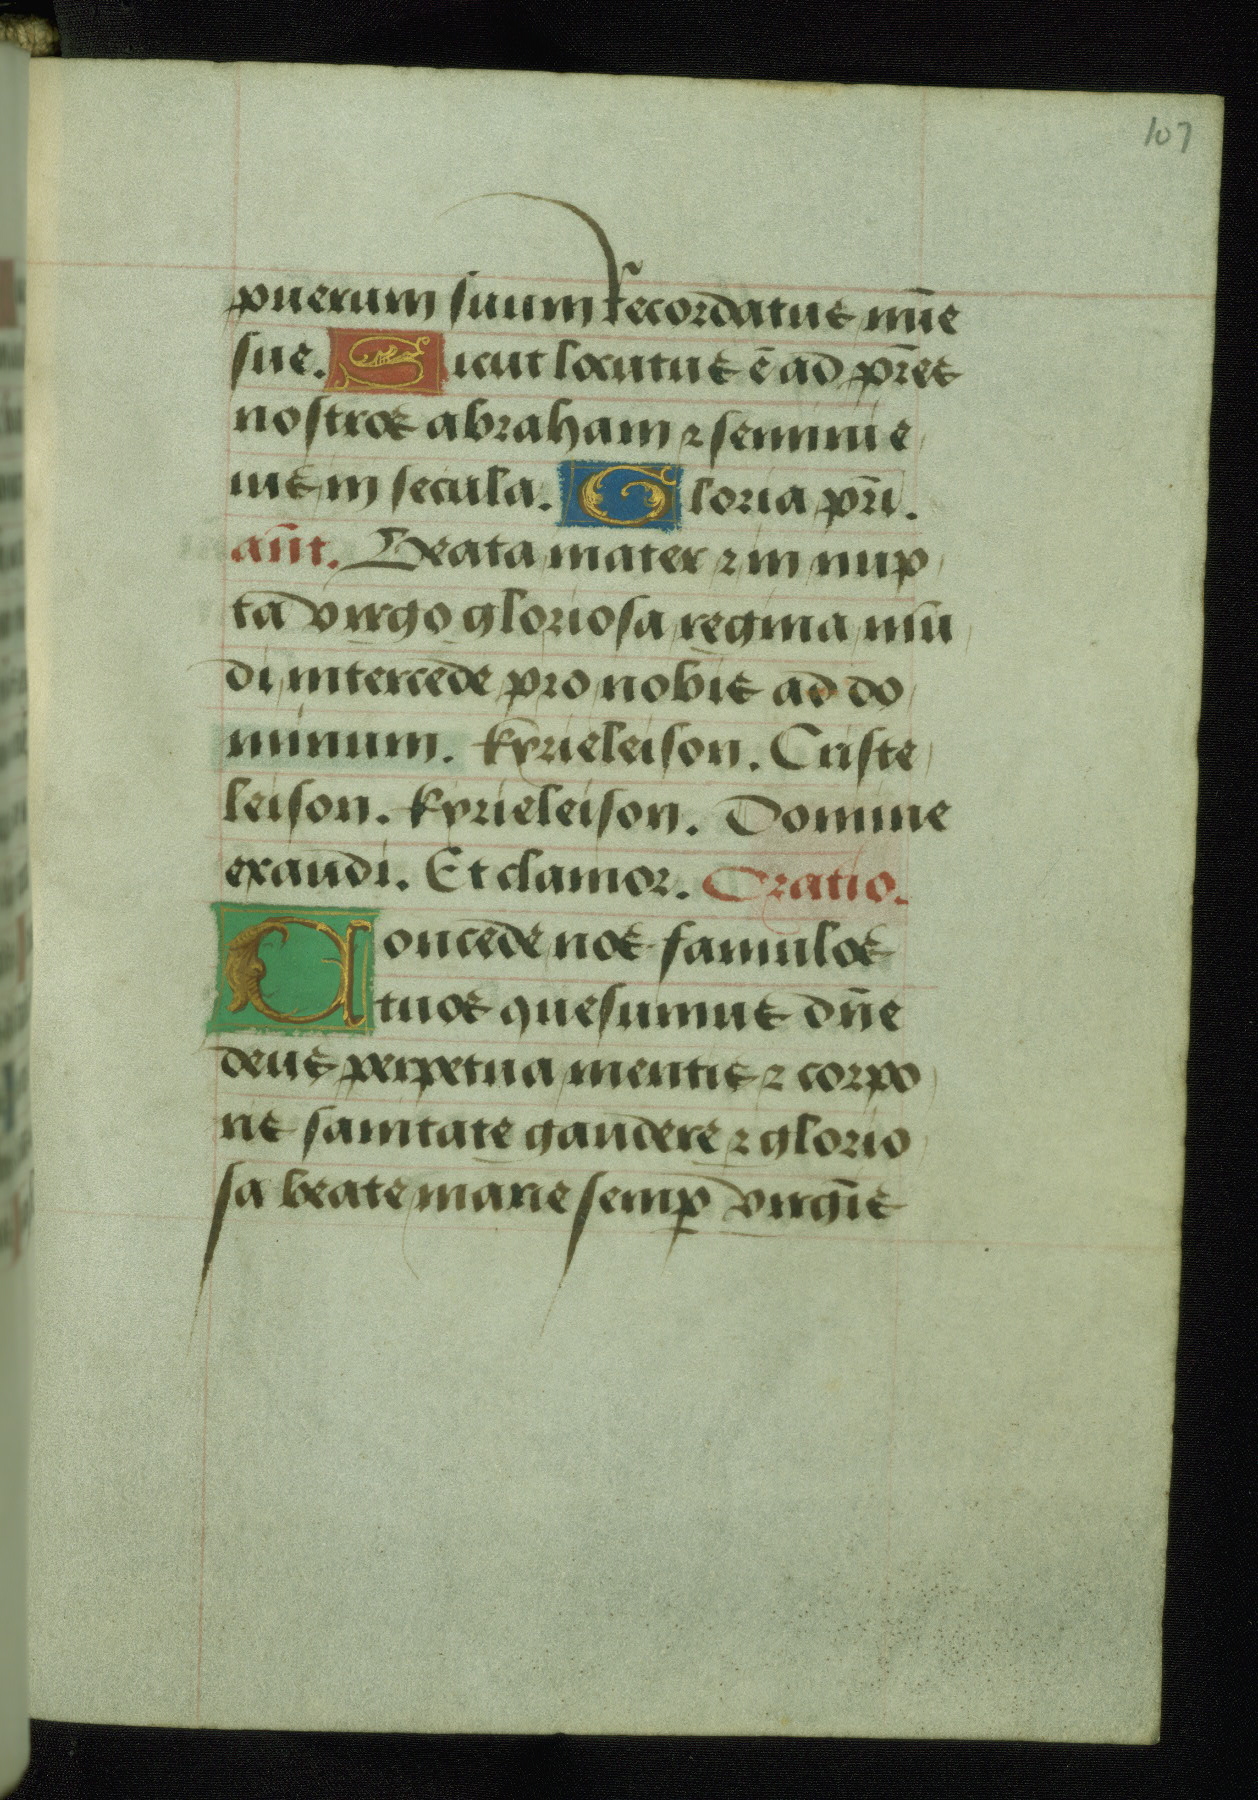 107
puerum suum recordatus mīe
sue. Sicut locutus ē ad pr̄es
nostros abraham ⁊ semini e
ius in secula. Gloria pr̄i.
an̄t. Beata mater ⁊ in nup
ta virgo gloriosa regina mū
di intercede pro nobis ad do
minum. kyrieleison. Criste
leison. kyrieleison. Domine
exaudi. Et clamor. Oratio.
Concede nos famulos
tuos quesumus dn̄e
deus perpetua mentis ⁊ corpo
ris sanitate gaudere ⁊ glorio
sa beate marie semp̱ virgīs